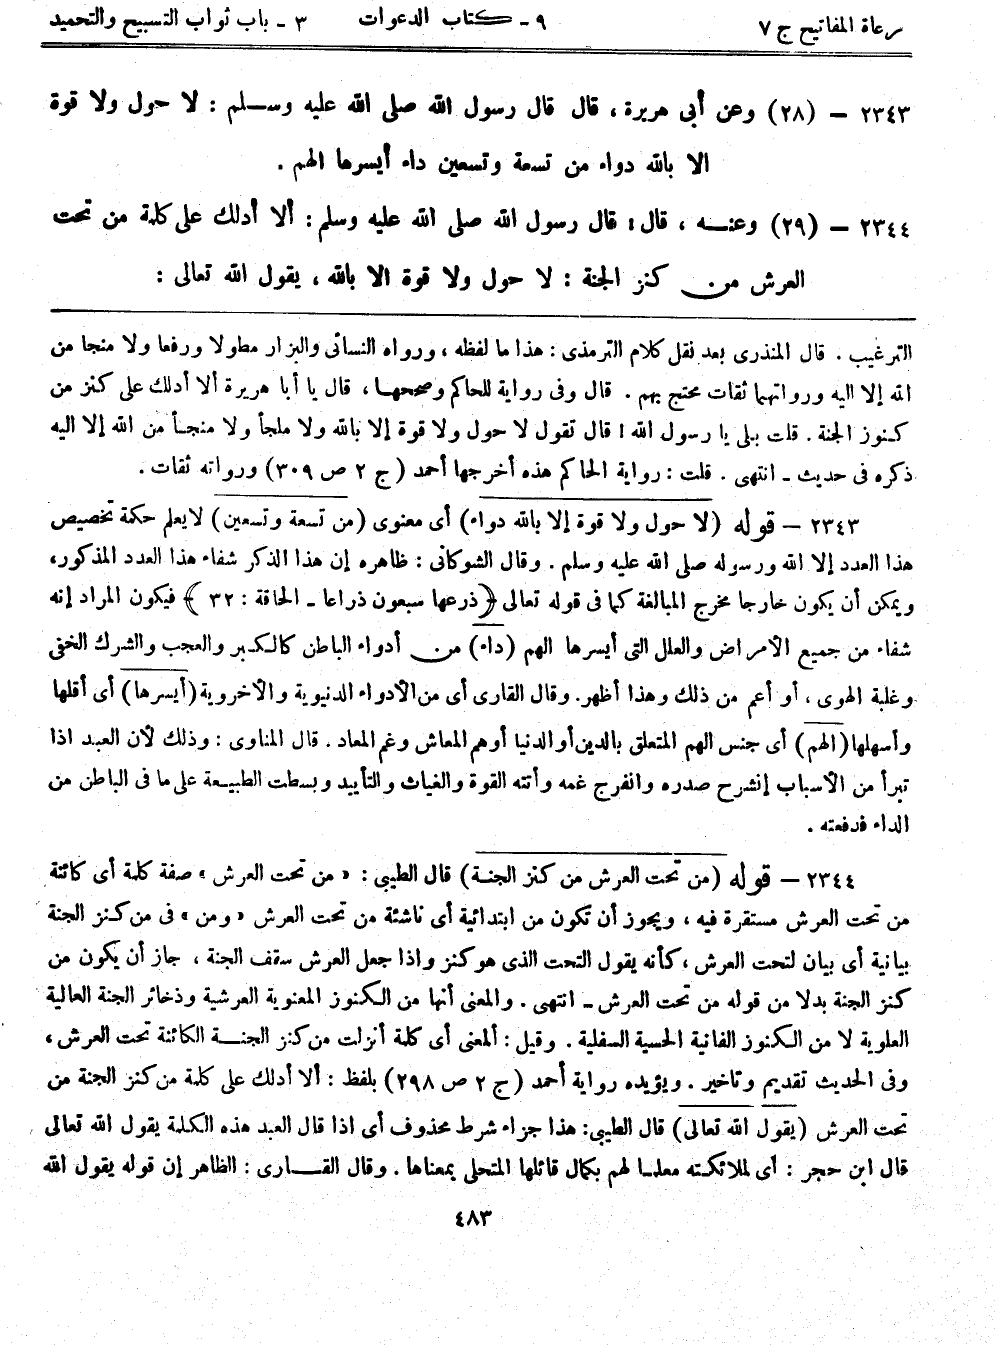 مرعاة المفاتيح ج ٧ ٩ - كتاب الدعوات ٣ - باب ثواب التسبيح والتحميد
٢٣٤٣ - (٢٨) وعن أبى هريرة ، قال قال رسول الله صلى الله عليه وسلم : لا حول ولا قوة
الا بالله دواء من تسعة وتسعين داء أيسرها الهم .
٢٣٤٤ - (٢٩) وعنه ، قال : قال رسول الله صلى الله عليه وسلم : ألا أدلك على كلمة من تحت
العرش من كنز الجنة : لا حول ولا قوة الا بالله ، يقول الله تعالى :
الترغيب . قال المنذرى بعد نقل كلام الترمذى : هذا ما لفظه ، ورواه النسائى والبزار مطولا ورفعا ولا منجا من
الله إلا اليه ورواتهما ثقات محتج بهم . قال وفى رواية للحاكم وصححها ، قال يا أبا هريرة ألا أدلك على كنز من
كنوز الجنة . قلت بلى يا رسول الله ! قال تقول لا حول ولا قوة إلا بالله ولا ملجأ ولا منجأ من الله إلا اليه
ذكره فى حديث - انتهى . قلت : رواية الحاكم هذه أخرجها أحمد ( ج ٢ ص ٣٠٩ ) ورواته ثقات .
٢٣٤٣ - قوله (لا حول ولا قوة إلا بالله دواء) أى معنوى (من تسعة وتسعين) لا يعلم حكمة تخصيص
هذا العدد إلا الله ورسوله صلى الله عليه وسلم . وقال الشوكانى : ظاهره إن هذا الذكر شفاء هذا العدد المذكور،
ويمكن أن يكون خارجا مخرج المبالغة كما فى قوله تعالى ﴿ذرعها سبعون ذراعا - الحاقة : ٣٢ ﴾ فيكون المراد إنه
شفاء من جميع الأمراض والعلل التى أيسرها الهم (داء) من أدواء الباطن كالكبر والعجب والشرك الخفى
وغلبة الهوى ، أو أعم من ذلك وهذا أظهر. وقال القارى أى من الأدواء الدنيوية والأخروية (أيسرها) أى أقلها
وأسهلها (الهم) أى جنس الهم المتعلق بالدين أو الدنيا أوهم المعاش وغم المعاد . قال المناوى : وذلك لأن العبد اذا
تبرأ من الأسباب إنشرح صدره وانفرج غمه وأتته القوة والغياث والتأييد وبسطت الطبيعة على ما فى الباطن من
الداء فدفعته .
٢٣٤٤ - قوله (من تحت العرش من كنز الجنة) قال الطيبى : « من تحت العرش » صفة كلمة أى كائنة
من تحت العرش مستقرة فيه ، ويجوز أن تكون من ابتدائية أى ناشئة من تحت العرش « ومن » فى من كنز الجنة
بيانية أى بيان لتحت العرش ، كأنه يقول التحت الذى هو كنز واذا جعل العرش سقف الجنة ، جاز أن يكون من
كنز الجنة بدلا من قوله من تحت العرش - انتهى . والمعنى أنها من الكنوز المعنوية العرشية وذخائر الجنة العالية
العلوية لا من الكنوز الفانية الحسية السفلية . وقيل : ألمعنى أى كلمة أنزلت من كنز الجنة الكائنة تحت العرش ،
وفى الحديث تقديم وتاخير . ويؤيده رواية أحمد ( ج ٢ ص ٢٩٨ ) بلفظ : ألا أدلك على كلمة من كنز الجنة من
تحت العرش (يقول الله تعالى) قال الطيبى: هذا جزاء شرط محذوف أى اذا قال العبد هذه الكلمة يقول الله تعالى
قال ابن حجر : أى لملائكته معلما لهم بكمال قائلها المتحلى بمعناها . وقال القارى : الظاهر إن قوله يقول الله
٤٨٣